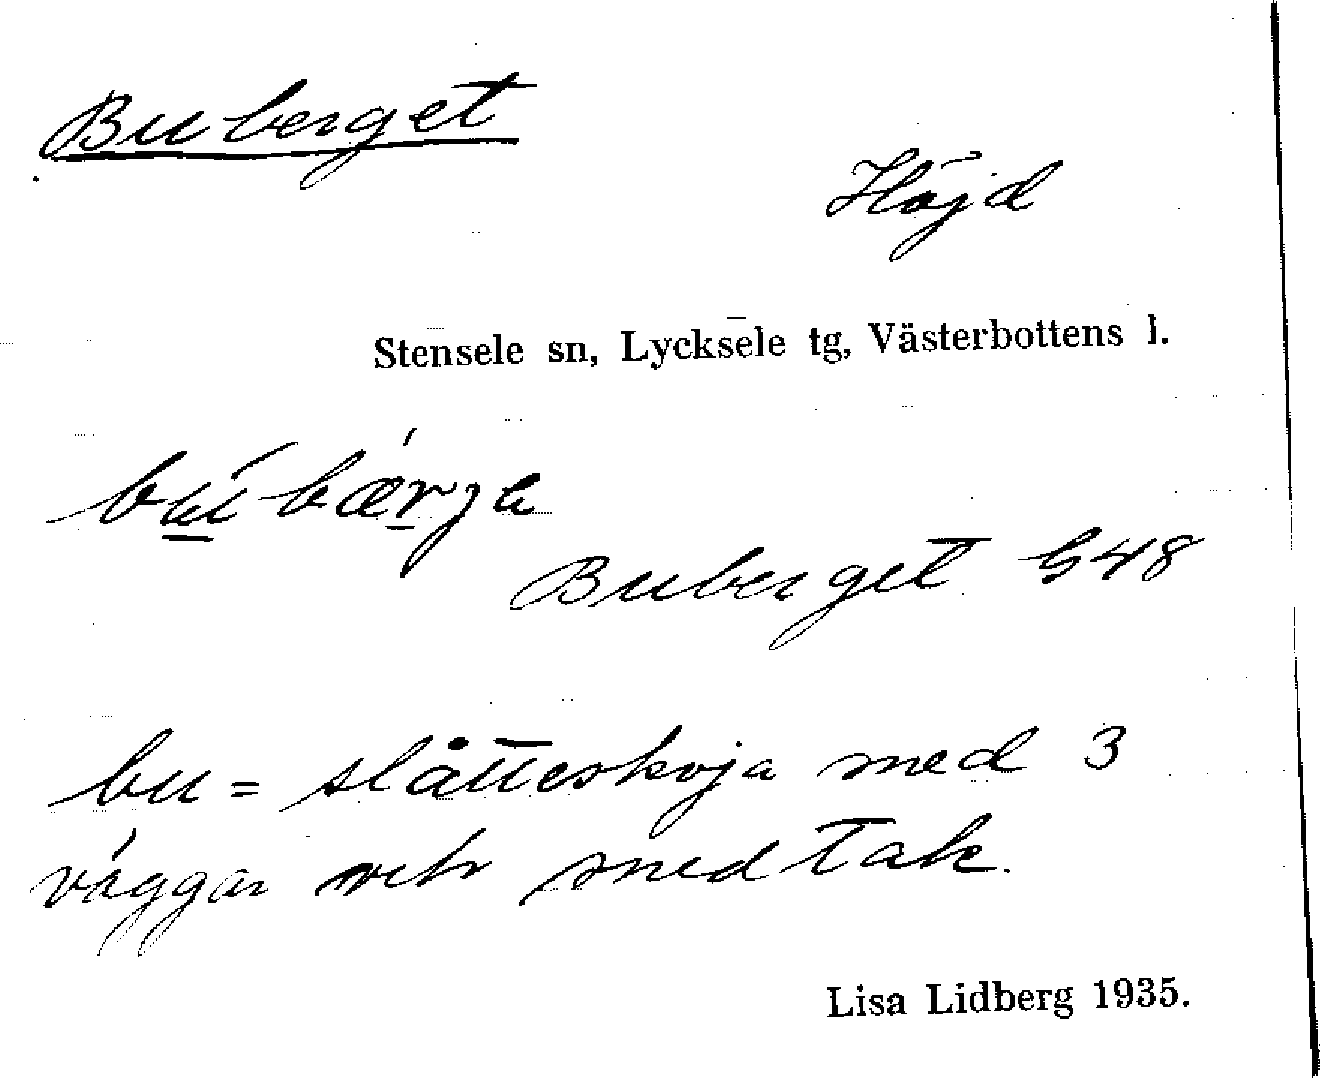 Buberget
Höjd
Stensele sn, Lycksele tg, Västerbottens l.
bu̱´bæṟ´ja
Buberget G48
bu = slåtteskoja med 3
väggar och snedtak.
Lisa Lidberg 1935.